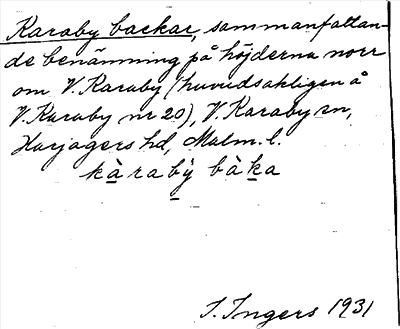 Karaby backar, sammanfattan-
de benämning på höjderna norr
om V. Karaby (huvudsakligen å
V. Karaby nr 20), V. Karaby sn,
Harjagers hd, Malm. l.
kàrabỳ bàka
I. Ingers 1931